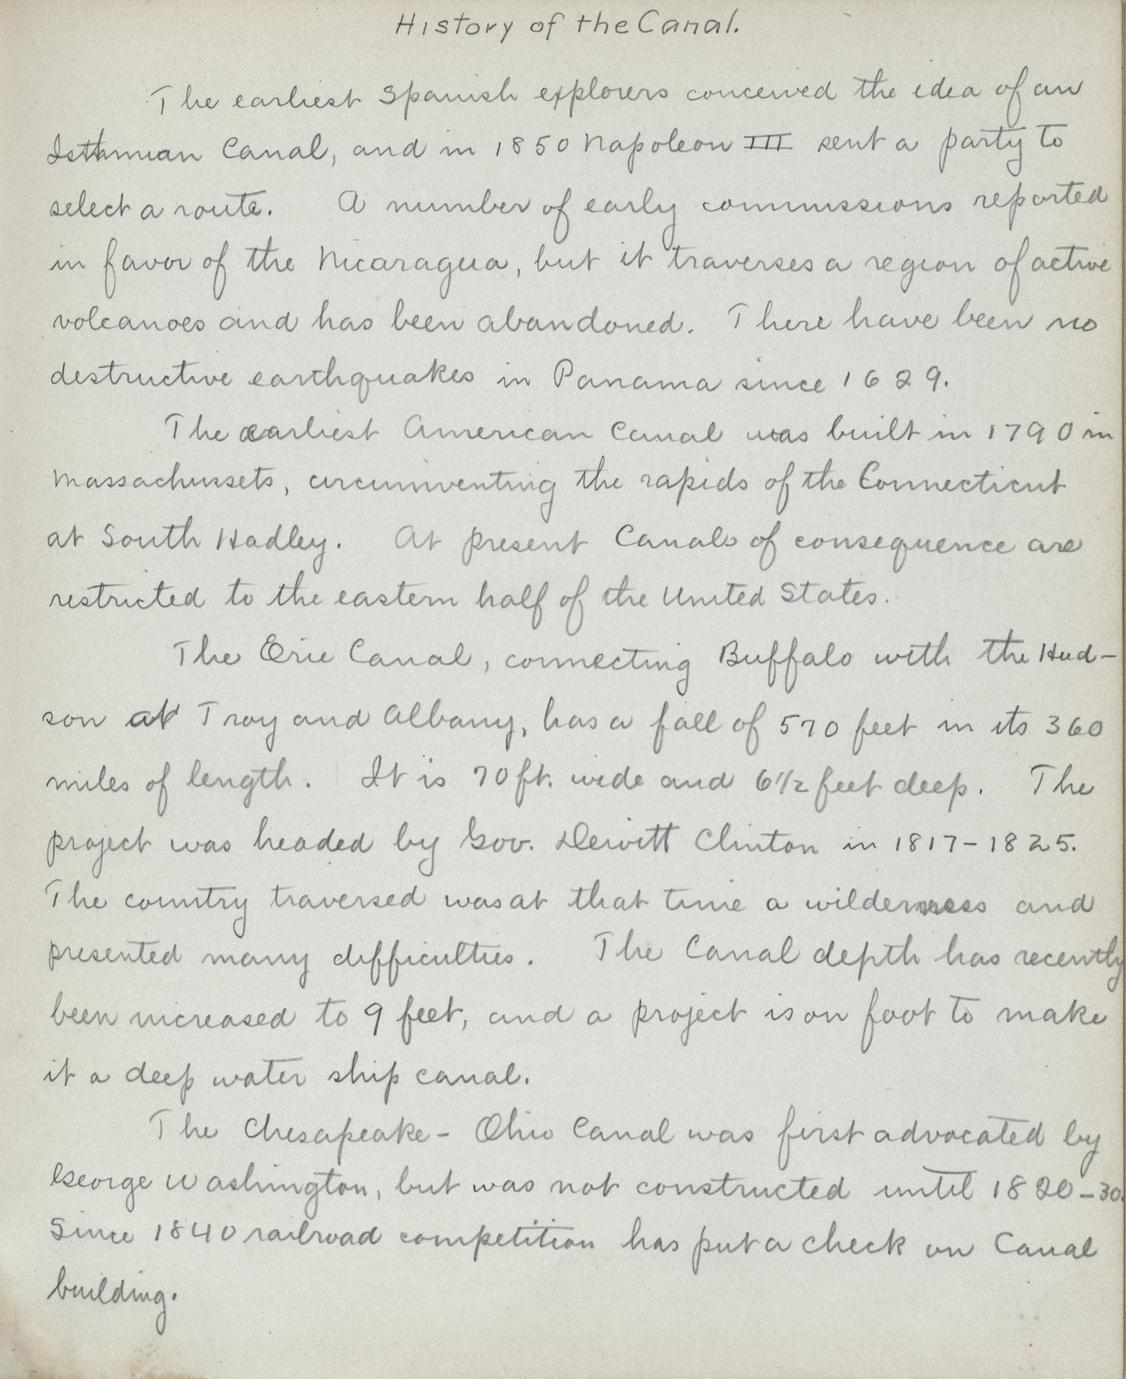 History of the Canal.
The earliest Spanish explorers conceived the idea of an
Isthmian Canal, and in 1850 Napoleon III sent a party to
select a route. A number of early commissions reported
in favor of the Nicaragua, but it traverses a region of active
volcanoes and has been abandoned. There have been no
destructive earthquakes in Panama since 1629.
The earliest American Canal was built in 1790 in
Massachussets, circumventing the rapids of the Connecticut
at South Hadley. At present Canals of consequence are
restricted to the eastern half of the United States.
The Erie Canal, connecting Buffalo with the Hud-
son at Troy and Albany, has a fall of 570 feet in its 360
miles of length. It is 70 ft. wide and 6½ feet deep. The
project was headed by Gov. Dewitt Clinton in 1817-1825.
The country traversed was at that time a wilderness and
presented many difficulties. The Canal depth has recently
been increased to 9 feet, and a project is on foot to make
it a deep water ship canal.
The Chesapeake-Ohio Canal was first advocated by
George Washington, but was not constructed until 1820-30.
Since 1840 railroad competition has put a check on Canal
building.